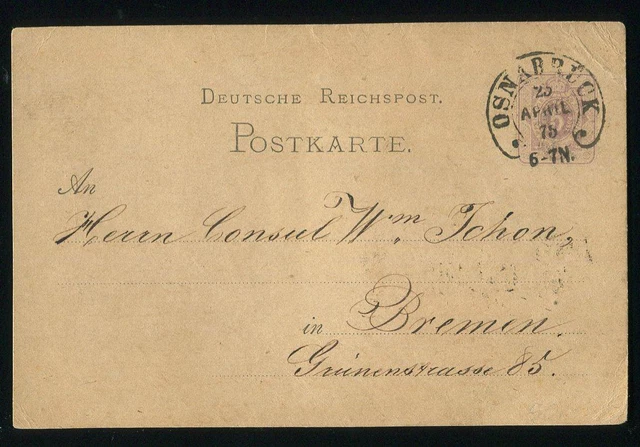 DEUTSCHE REICHSPOST.
POSTKARTE.
OSNABRÜCK
25
APRIL
75
6-7N.
An
Herrn Consul Wm. Ichon,
in Bremen.
Grünenstrasse 85.